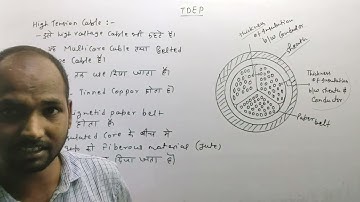 TDEP
High Tension Cable :-
- इसे High voltage Cable भी कहते हैं।
यह Multicore Cable तथा Belted
Cable है।
तक use किया जाता है।
Tinned Copper होता है
paper belt
होता है।
Core के बीच में
Fibrous material (Jute)
दिया जाता है)
thickness
of insulation
b/w conductor
sheath
Thickness
of insulation
b/w sheath &
Conductor
Paper belt